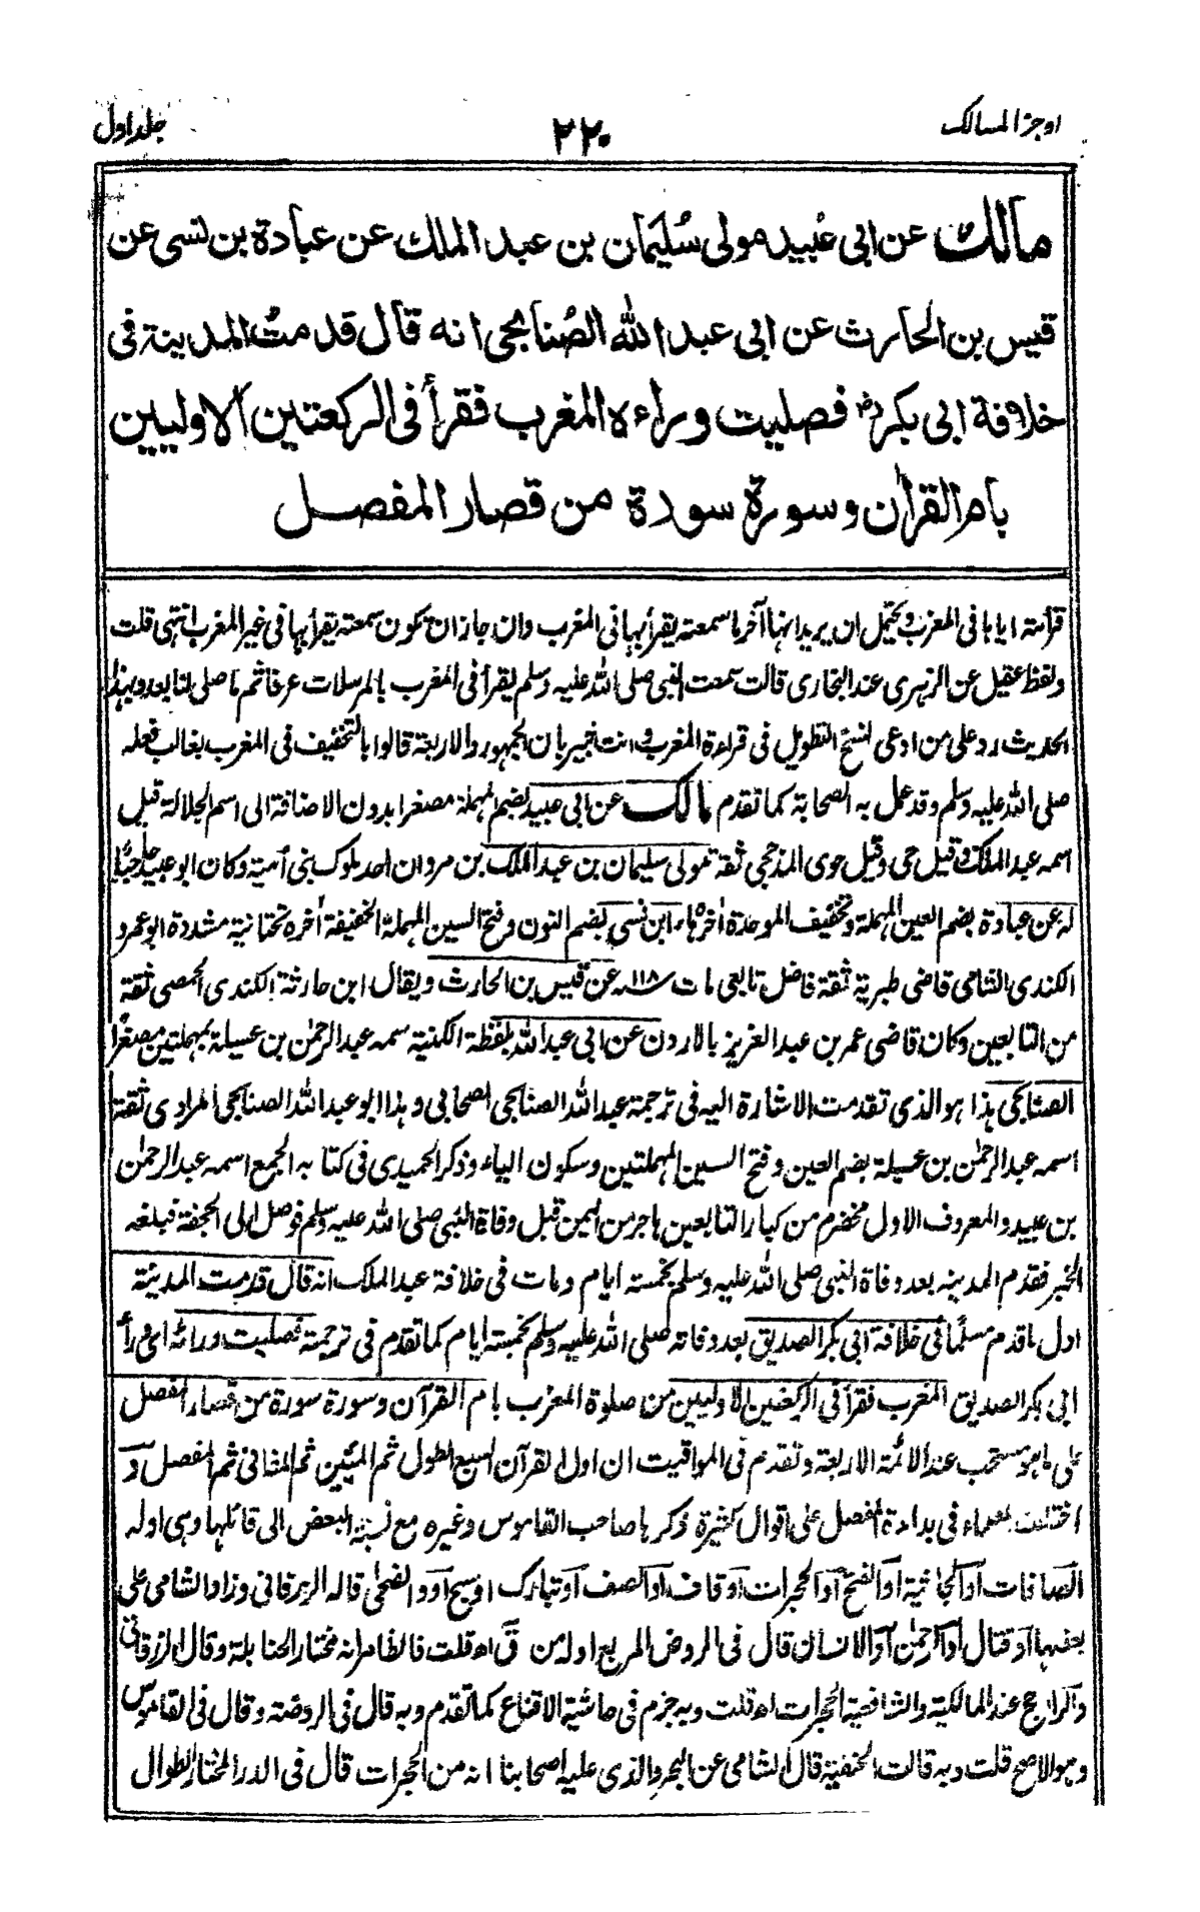 اوجز المسالك
٢٢٠
جلد اول
مالك عن ابى عُبيد مولى سُليمان بن عبد الملك عن عبادة بن نسى عن
قيس بن الحارث عن ابى عبد الله الصُنابحى انه قال قدمتُ المدينة فى
خلافة ابى بكر رض فصليت وراءه المغرب فقرأ فى الركعتين الاوليين
بام القرآن وسورة سورة من قصار المفصل
قرأته اياها فى المغرب ويحتمل ان يريد انها آخر ما سمعته يقرأ بها فى المغرب وان جاز ان تكون سمعته يقرأ بها فى غير المغرب انتهى قلت
ولفظ عقيل عن الزهرى عند البخارى قالت سمعت النبى صلى الله عليه وسلم يقرأ فى المغرب بالمرسلات عرفا ثم ما صلى لنا بعد وبهذا
الحديث رد على من ادعى نسخ التطويل فى قراءة المغرب وانت خبير بان الجمهور والاربعة قالوا بالتخفيف فى المغرب بغالب فعله
صلى الله عليه وسلم وقد عمل به الصحابة كما تقدم مالك عن ابى عبيد بضم المهملة مصغرا بدون الاضافة الى اسم الجلالة قيل
اسمه عبد الملك وقيل حى وقيل حوى المذحجى ثقة مولى سليمان بن عبد الملك بن مروان احد ملوك بنى أمية وكان ابو عبيد حاجبا
له عن عبادة بضم العين المهملة وتخفيف الموحدة آخره هاء ابن نسى بضم النون وفتح السين المهملة الخفيفة آخره تحتانية مشددة ابو عمرو
الكندى الشامى قاضى طبرية ثقة فاضل تابعى مات سنه ١١٨ عن قيس بن الحارث ويقال ابن حارثة الكندى الحمصى ثقة
من التابعين وكان قاضى عمر بن عبد العزيز بالاردن عن ابى عبد الله بلفظة الكنية سمه عبد الرحمٰن بن عسيلة بمهملتين مصغرًا
الصنابحى هذا هو الذى تقدمت الاشارة اليه فى ترجمة عبد الله الصنابحى الصحابى وهذا ابو عبد الله الصنابحى المرادى ثقة
اسمه عبد الرحمٰن بن عسيلة بضم العين وفتح السين المهملتين وسكون الياء وذكر الحميدى فى كتابه الجمع اسمه عبد الرحمن
بن عبيد والمعروف الاول مخضرم من كبار التابعين هاجر من اليمن قبل وفاة النبى صلى الله عليه وسلم فوصل الى الجحفة فبلغه
الخبر فقدم المدينه بعد وفاة النبى صلى الله عليه وسلم بخمسة ايام ومات فى خلافة عبد الملك انه قال قدمت المدينة
اول ما قدم مسلمًا فى خلافة ابى بكر الصديق بعد وفاته صلى الله عليه وسلم بخمسة ايام كما تقدم فى ترجمة فصليت ورائه اى وراء
ابى بكر الصديق المغرب فقرأ فى الركعتين الاوليين من صلوة المغرب بام القرآن وسورة سورة من قصار المفصل
على ما هو مستحب عند الائمة الاربعة وتقدم فى المواقيت ان اول القرآن السبع الطول ثم المئين ثم المثانى ثم المفصل و
اختلفت العلماء فى بداءة المفصل على اقوال كثيرة ذكرها صاحب القاموس وغيره مع نسبة البعض الى قائلها وهى اوله
الصافات او الجاثية او الفتح او الحجرات او قاف او الصف او تبارك او سبح او والضحى قاله الزرقانى وزاد الشامى على
بعضها او قتال او الرحمٰن او الانسان قال فى الروض المربع اوله من ق اھ قلت فالظاهر انه مختار الحنابلة وقال الزرقانى
والراجح عند المالكية والشافعية الحجرات اھ قلت وبه جزم فى حاشية الاقناع كما تقدم وبه قال فى الروضة وقال فى القاموس
وهو الاصح قلت وبه قالت الحنفية قال الشامى عن البحر والذى عليه اصحابنا انه من الحجرات قال فى الدر المختار الطوال